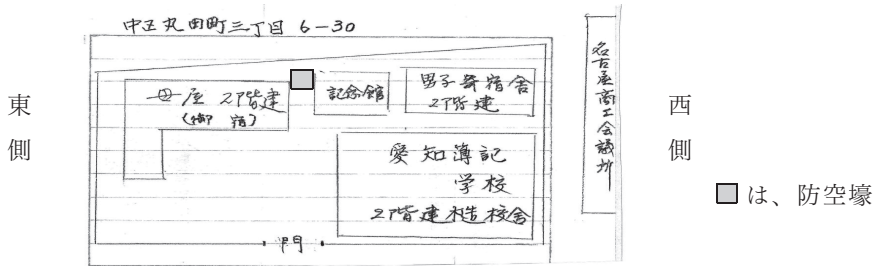 中区丸田町三丁目 6-30
東側
母屋 2階建
(御宿)
記念館
男子寄宿舎
2階建
愛知簿記
学校
2階建木造校舎
門
名古屋商工会議所
西側
は、防空壕